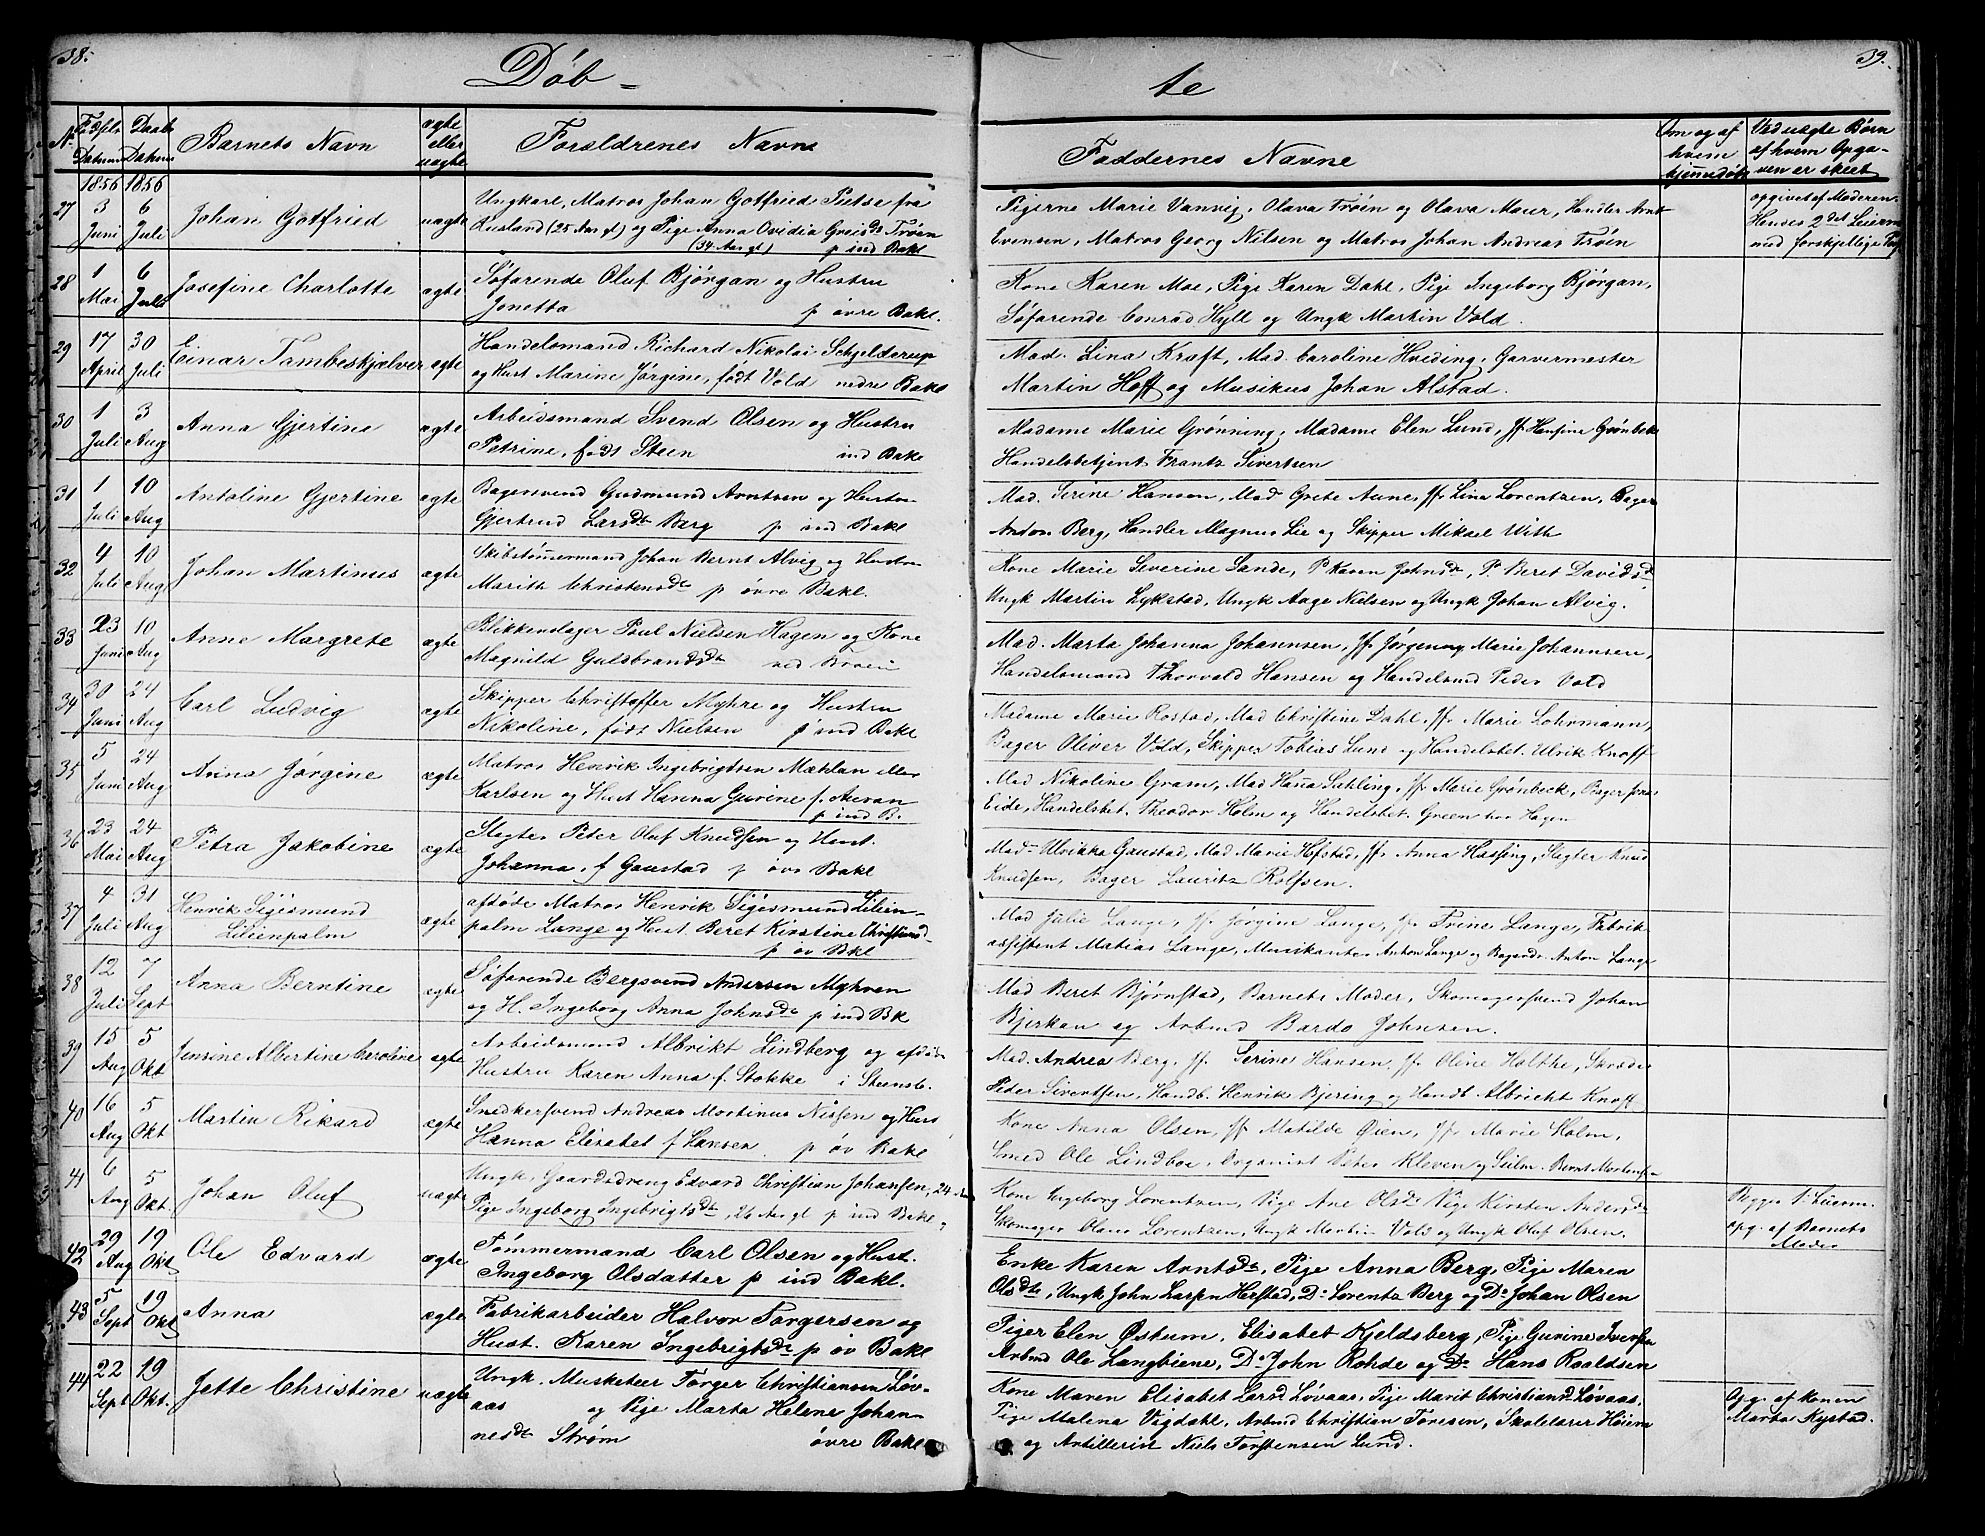 38.
Döb-
No
Fødsels Datum
Daabs Datum
Barnets Navn
ægte eller uægte
Forældrenes Navne
27
1856 3 Juni
1856 6 Juli
Johan Gotfried
uægte
Ungkarl, Matros Johan Gotfried Pietse fra
Rusland (25 Aar gl) og Pige Anna Ovidia Greisdt Tröen
(34 Aar gl) p ind Bakl
28
1 Mai
6 Juli
Josefine Charlotte
ægte
Söfarende Oluf Bjørgan og Hustru
Jonetta p øvre Bakl.
29
17 April
30 Juli
Einar Tambeskjælver
ægte
Handelsmand Richard Nikolai Schjelderup
og Hust Marine Jørgine, født Vold nedre Bakl
30
1 Juli
3 Aug
Anna Gjertine
ægte
Arbeidsmand Svend Olsen og Hustru
Petrine, født Steen ind Bakl
31
1 Juli
10 Aug
Antoline Gjertine
ægte
Bagersvend Gudmund Arntsen og Hustru
Gjertrud Larsdt Berg p ind Bakl
32
4 Juli
10 Aug
Johan Martinus
ægte
Skibstömmermand Johan Bernt Alvig og Hustru
Marith Christensdt p øvre Bakl.
33
23 Juni
10 Aug
Anne Margrete
ægte
Blikkenslager Poul Nielsen Hagen og Kone
Magnild Guldbrandsdt ved Broen
34
30 Juni
24 Aug
Carl Ludvig
ægte
Skipper Christoffer Myhre og Hustru
Nikoline, født Nielsen p ind Bakl
35
5 Juni
24 Aug
Anna Jørgine
ægte
Matros Henrik Ingebrigtsen Mæhlan eller
Karlsen og Hust Hanna Gurine f. Auran
p ind B.
36
23 Mai
24 Aug
Petra Jakobine
ægte
Slagter Peter Oluf Knudsen og Hust.
Johanna, f Gaustad p øvr Bakl
37
4 Juli
31 Aug
Henrik Sigismund
Lilienpalm
ægte
afdøde Matros Henrik Sigismund Lilien-
palm Lange og Hust. Beret Kirstine Christiansd.
p øv Bakl
38
12 Juli
7 Sept
Anna Berntine
ægte
Söfarende Bergsvend Andersen Myhren
og H. Ingeborg Anna Johnsdt p ind Bk
39
15 Aug
5 Okt
Jensine Albertine Caroline
ægte
Arbeidsmand Albrikt Lindberg og afdöde
Hustru Karen Anna f. Stokke i Steensb.
40
16 Aug
5 Okt
Martin Rikard
ægte
Snedkersvend Andreas Martinus Nissen og Hust
Hanna Elisabet f Hansen. p øv Bakl
41
6 Aug
5 Okt.
Johan Oluf
uægte
Ungk. Gaardsdreng Edvard Christian Johansen, 24
Pige Ingeborg Ingebrigtsdt, 26 Aar gl p ind Bakl
42
29 Aug
19 Okt
Ole Edvard
ægte
Tømmermand Carl Olsen og Hust.
Ingeborg Olsdatter p ind Bakl.
43
5 Sept
19 Okt
Anna
ægte
Fabrikarbeider Halvor Torgersen og
Hust. Karen Ingebrigtsdt p øv Bakl
44
22 Sept
19 Okt.
Jette Christine
uægte
Ungk. Musketeer Torger Christiansen Løv-
aas og Pige Marta Helene Johan-
nesdt Strøm øvre Bakl
39.
te
Faddernes Navne
Om og af hvem hjemmedøbt
Ved uægte Børn af hvem Opga-
ven er skeet
Pigerne Marie Vanvig, Olava Tröen og Olava Maier, Handler Arnt
Evensen, Matros Georg Nilsen og Matros Johan Andreas Tröen
opgivet af Moderen.
Hendes 2det Leierm
med forskjellige
Kone Karen Moe, Pige Karen Dahl, Pige Ingeborg Bjørgan,
Söfarende Conrad Hyll og Ungk Martin Vold.
Mad. Lina Kraft, Mad. Caroline Hviding, Garvermester
Martin Hoff og Musikus Johan Alstad.
Madame Marie Grønning, Madame Elen Lund, Jf. Hansine Grønbek
Handelsbetjent Frantz Sivertsen
Mad. Serine Hanson, Mad Grete Aune, Jf. Lina Lorentzen, Bager
Anton Berg, Handler Magnus Lie og Skipper Mikael With
Kone Marie Severine Sande, P Karen Johnsdt, P. Beret Davidsd
Ungk Martin Lykstad, Ungk Aage Nielsen og Ungk Johan Alvig.
Mad. Marta Johanna Johannsen, Jf. Jørgen og Marie Johannsen,
Handelsmand Thorvald Hansen og Handelsmd Peder Vold
Madame Marie Rostad, Mad Christine Dahl, Jf. Marie Lohrmann,
Bager Oliver Vold, Skipper Tobias Lund og Handelsbet. Ulrik Knoff
Mad Nikoline Gram, Mad Hana Sahling, Jf. Marie Grønbeck, Bager Jonas
Eide, Handelsbet. Theodor Holm og Handelsbet. Green hos Hagen
Mad. Ulrikka Gaustad, Mad Marie Hofstad, Jf. Anna Hassing, Slagter Knud
Knudsen, Bager Lauritz Rolfsen.
Mad Julie Lange, Jf. Jörgine Lange, Jf. Trine Lange, Fabrik
assistent Matias Lange, Musikanter Anton Lange og Bagersv. Anton Lange
Mad Beret Bjørnstad, Barnets Moder, Skomagersvend Johan
Bjerkan og Arbmd Bardo Johnsen.
Mad. Andrea Berg, Jf. Serine Hansen, Jf. Oline Holthe, Skræder
Peder Sivertsen, Handb. Henrik Bjering og Handb Albricht Knoff
Kone Anna Olsen, Jf Matilde Øien, Jf. Marie Holm,
Smed Ole Lindboe, Organist Peter Kleven og Seilm. Bernt Mortensen
Kone Ingeborg Lorentzen, Pige Ane Olsdt Pige Kirsten Andersdt
Skomager Olaus Lorentzen, Ungk Martin Vold og Ungk Oluf Olsen.
Begges 1. Leierm.
opg. af Barnets
Moder
Enke Karen Arntsdt, Pige Anna Berg, Pige Maren
Olsdt, Ungk John Larsen Hefstad, Do Lorentz Berg og Do Johan Olsen
Piger Elen Østum, Elisabet Kjeldsberg, Pige Gurine Iversen
Arbmd Ole Langbiene, Do John Rohde og Do Hans Roaldsen
Kone Maren Elisabet Larsd Løvaas, Pige Marit Christiand. Løvaas,
Pige Malena Vigdahl, Arbmd Christian Toresen, Skolelærer Høiem
og Artillerist Niels Torstensen Lund.
Opg. af Konen
Marta Rystad.